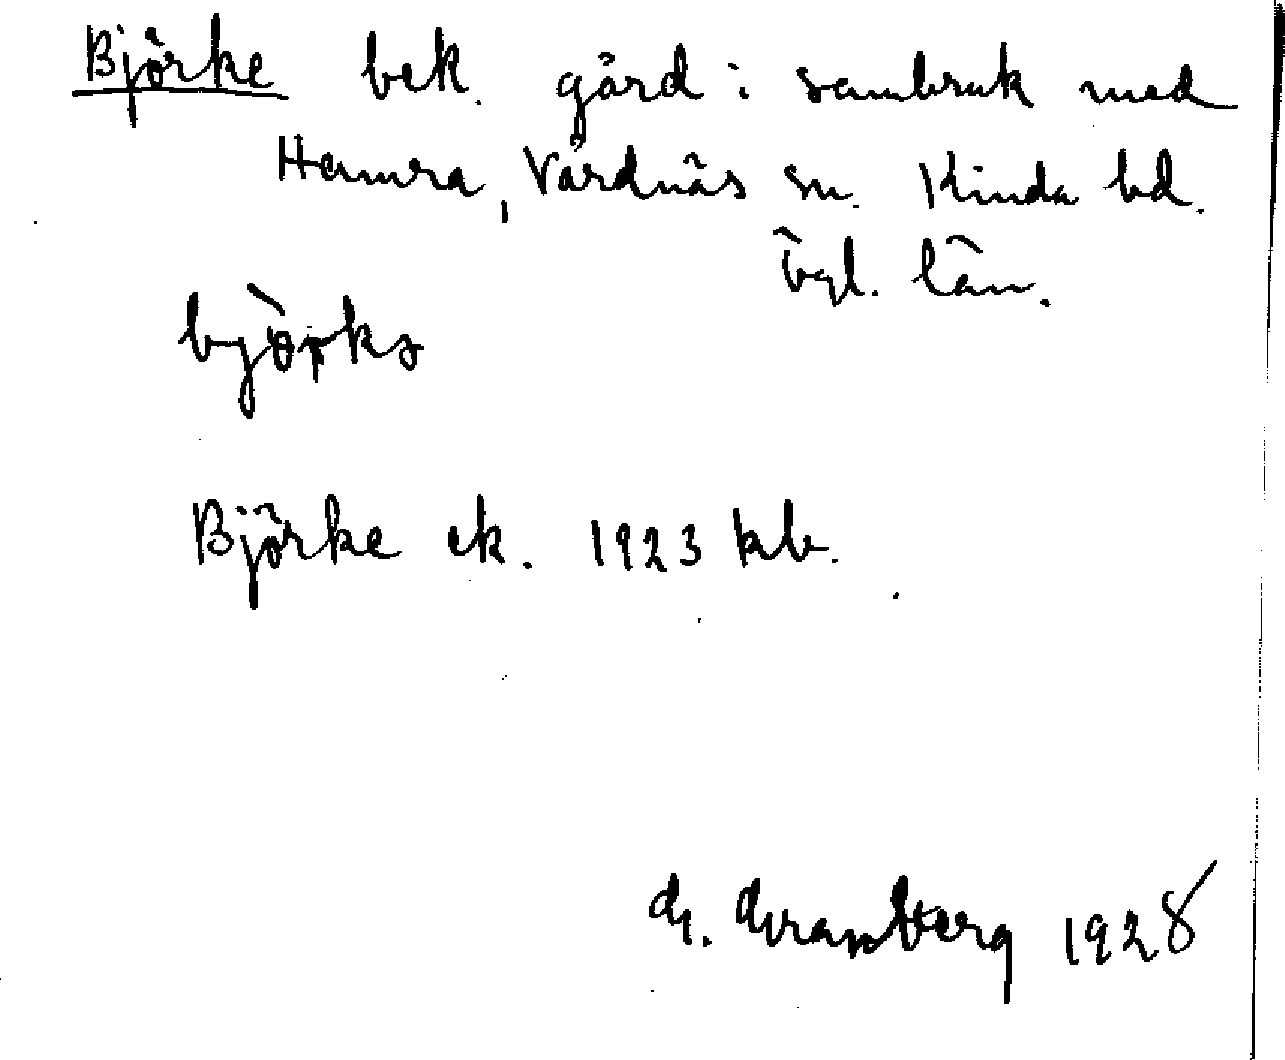 Björke bek. gård i sambruk med
Hamra, Vårdnäs sn. Kinda hd.
Ögl. län.
bjö̀rkə
Björke ek. 1923 kb.
G. Granberg 1928